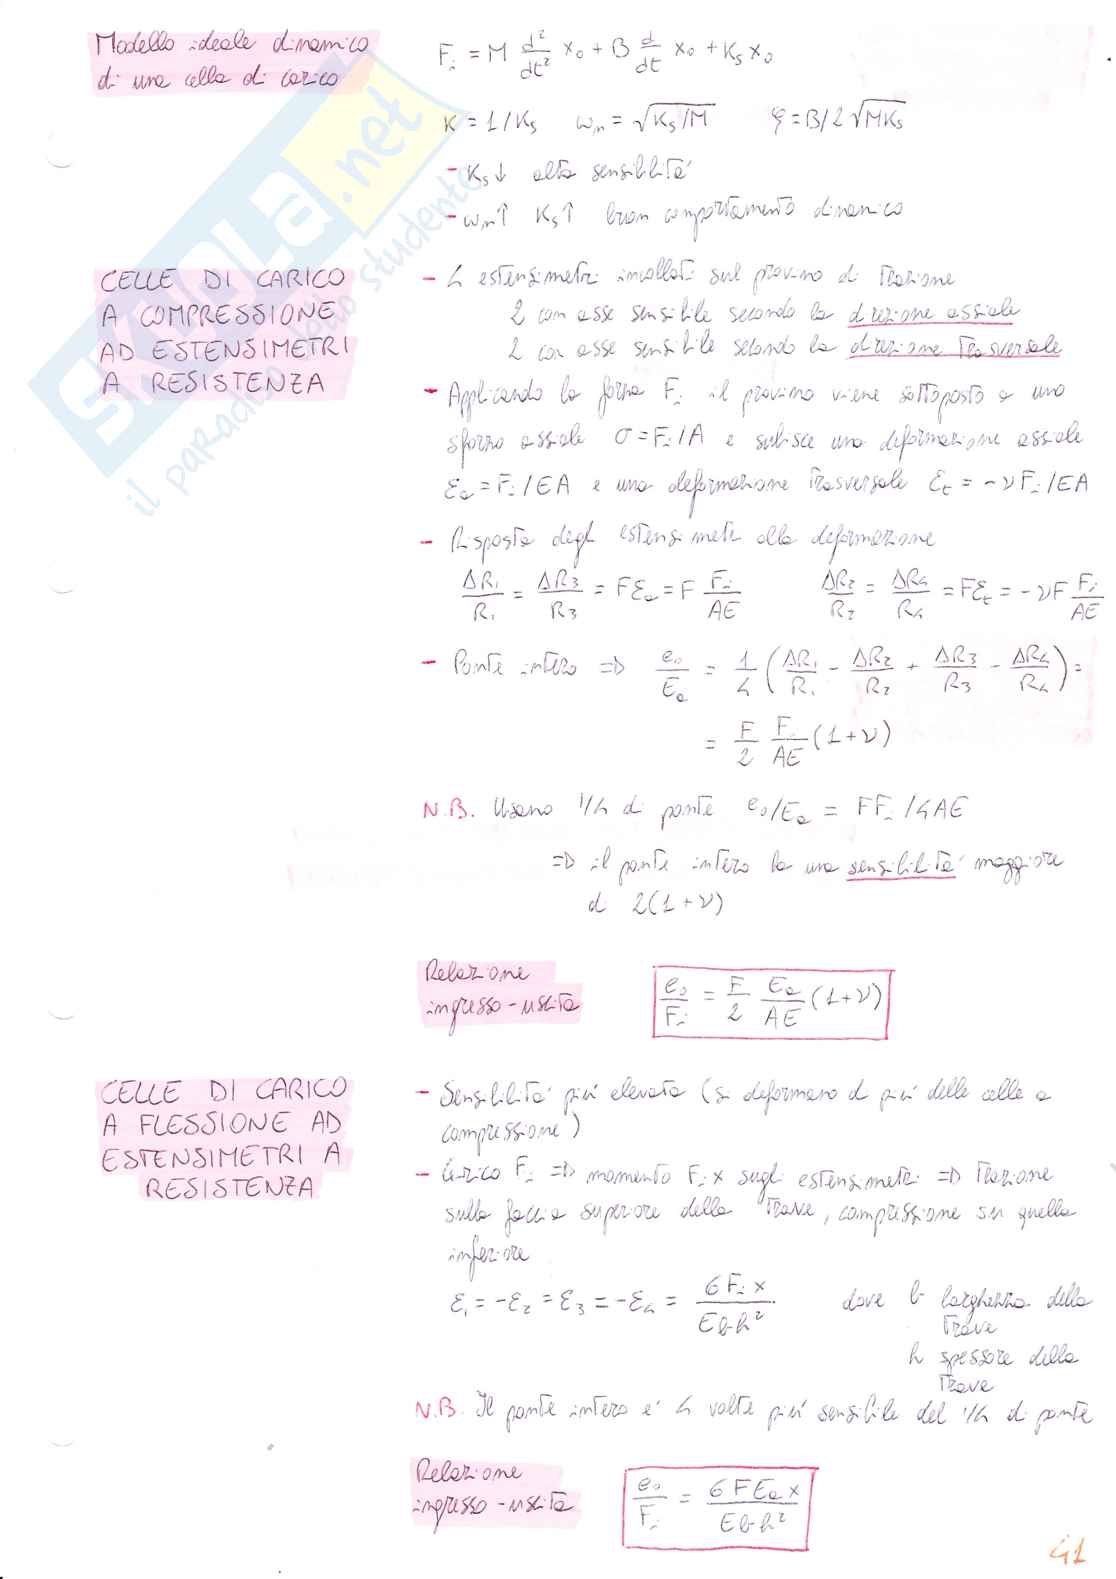 Modello ideale dinamico
di una cella di carico
F_i = M d²/dt² x_0 + B d/dt x_0 + K_s x_0
K = 1/K_s   ω_n = √(K_s/M)   ξ = B/2√(MK_s)
- K_s↓ alta sensibilità
- ω_n↑ K_s↑ buon comportamento dinamico
CELLE DI CARICO
A COMPRESSIONE
AD ESTENSIMETRI
A RESISTENZA
- 4 estensimetri incollati sul provino di trazione
2 con asse sensibile secondo la direzione assiale
2 con asse sensibile secondo la direzione trasversale
- Applicando la forza F_i il provino viene sottoposto a uno
sforzo assiale σ = F_i/A e subisce una deformazione assiale
ε_a = F_i/EA e una deformazione trasversale ε_t = -νF_i/EA
- Risposta degli estensimetri alla deformazione
ΔR_1/R_1 = ΔR_3/R_3 = Fε_a = F F_i/AE   ΔR_2/R_2 = ΔR_4/R_4 = Fε_t = -νF F_i/AE
- Ponte intero => e_0/E_a = 1/4 (ΔR_1/R_1 - ΔR_2/R_2 + ΔR_3/R_3 - ΔR_4/R_4) =
= F/2 F_i/AE (1+ν)
N.B. Usano 1/4 di ponte e_0/E_a = FF_i/4AE
=> il ponte intero ha una sensibilità maggiore
di 2(1+ν)
Relazione
ingresso-uscita
e_0/F_i = F/2 E_a/AE (1+ν)
CELLE DI CARICO
A FLESSIONE AD
ESTENSIMETRI A
RESISTENZA
- Sensibilità più elevata (si deformano di più delle celle a
compressione)
- Carico F_i => momento F_i x sugli estensimetri => trazione
sulla faccia superiore della trave, compressione su quella
inferiore
ε_1 = -ε_2 = ε_3 = -ε_4 = 6F_i x/Ebh²   dove b larghezza della
trave
h spessore della
trave
N.B. Il ponte intero è 4 volte più sensibile del 1/4 di ponte
Relazione
ingresso-uscita
e_0/F_i = 6FE_a x/Ebh²
41
SKUOLA.net
il paradiso dello studente